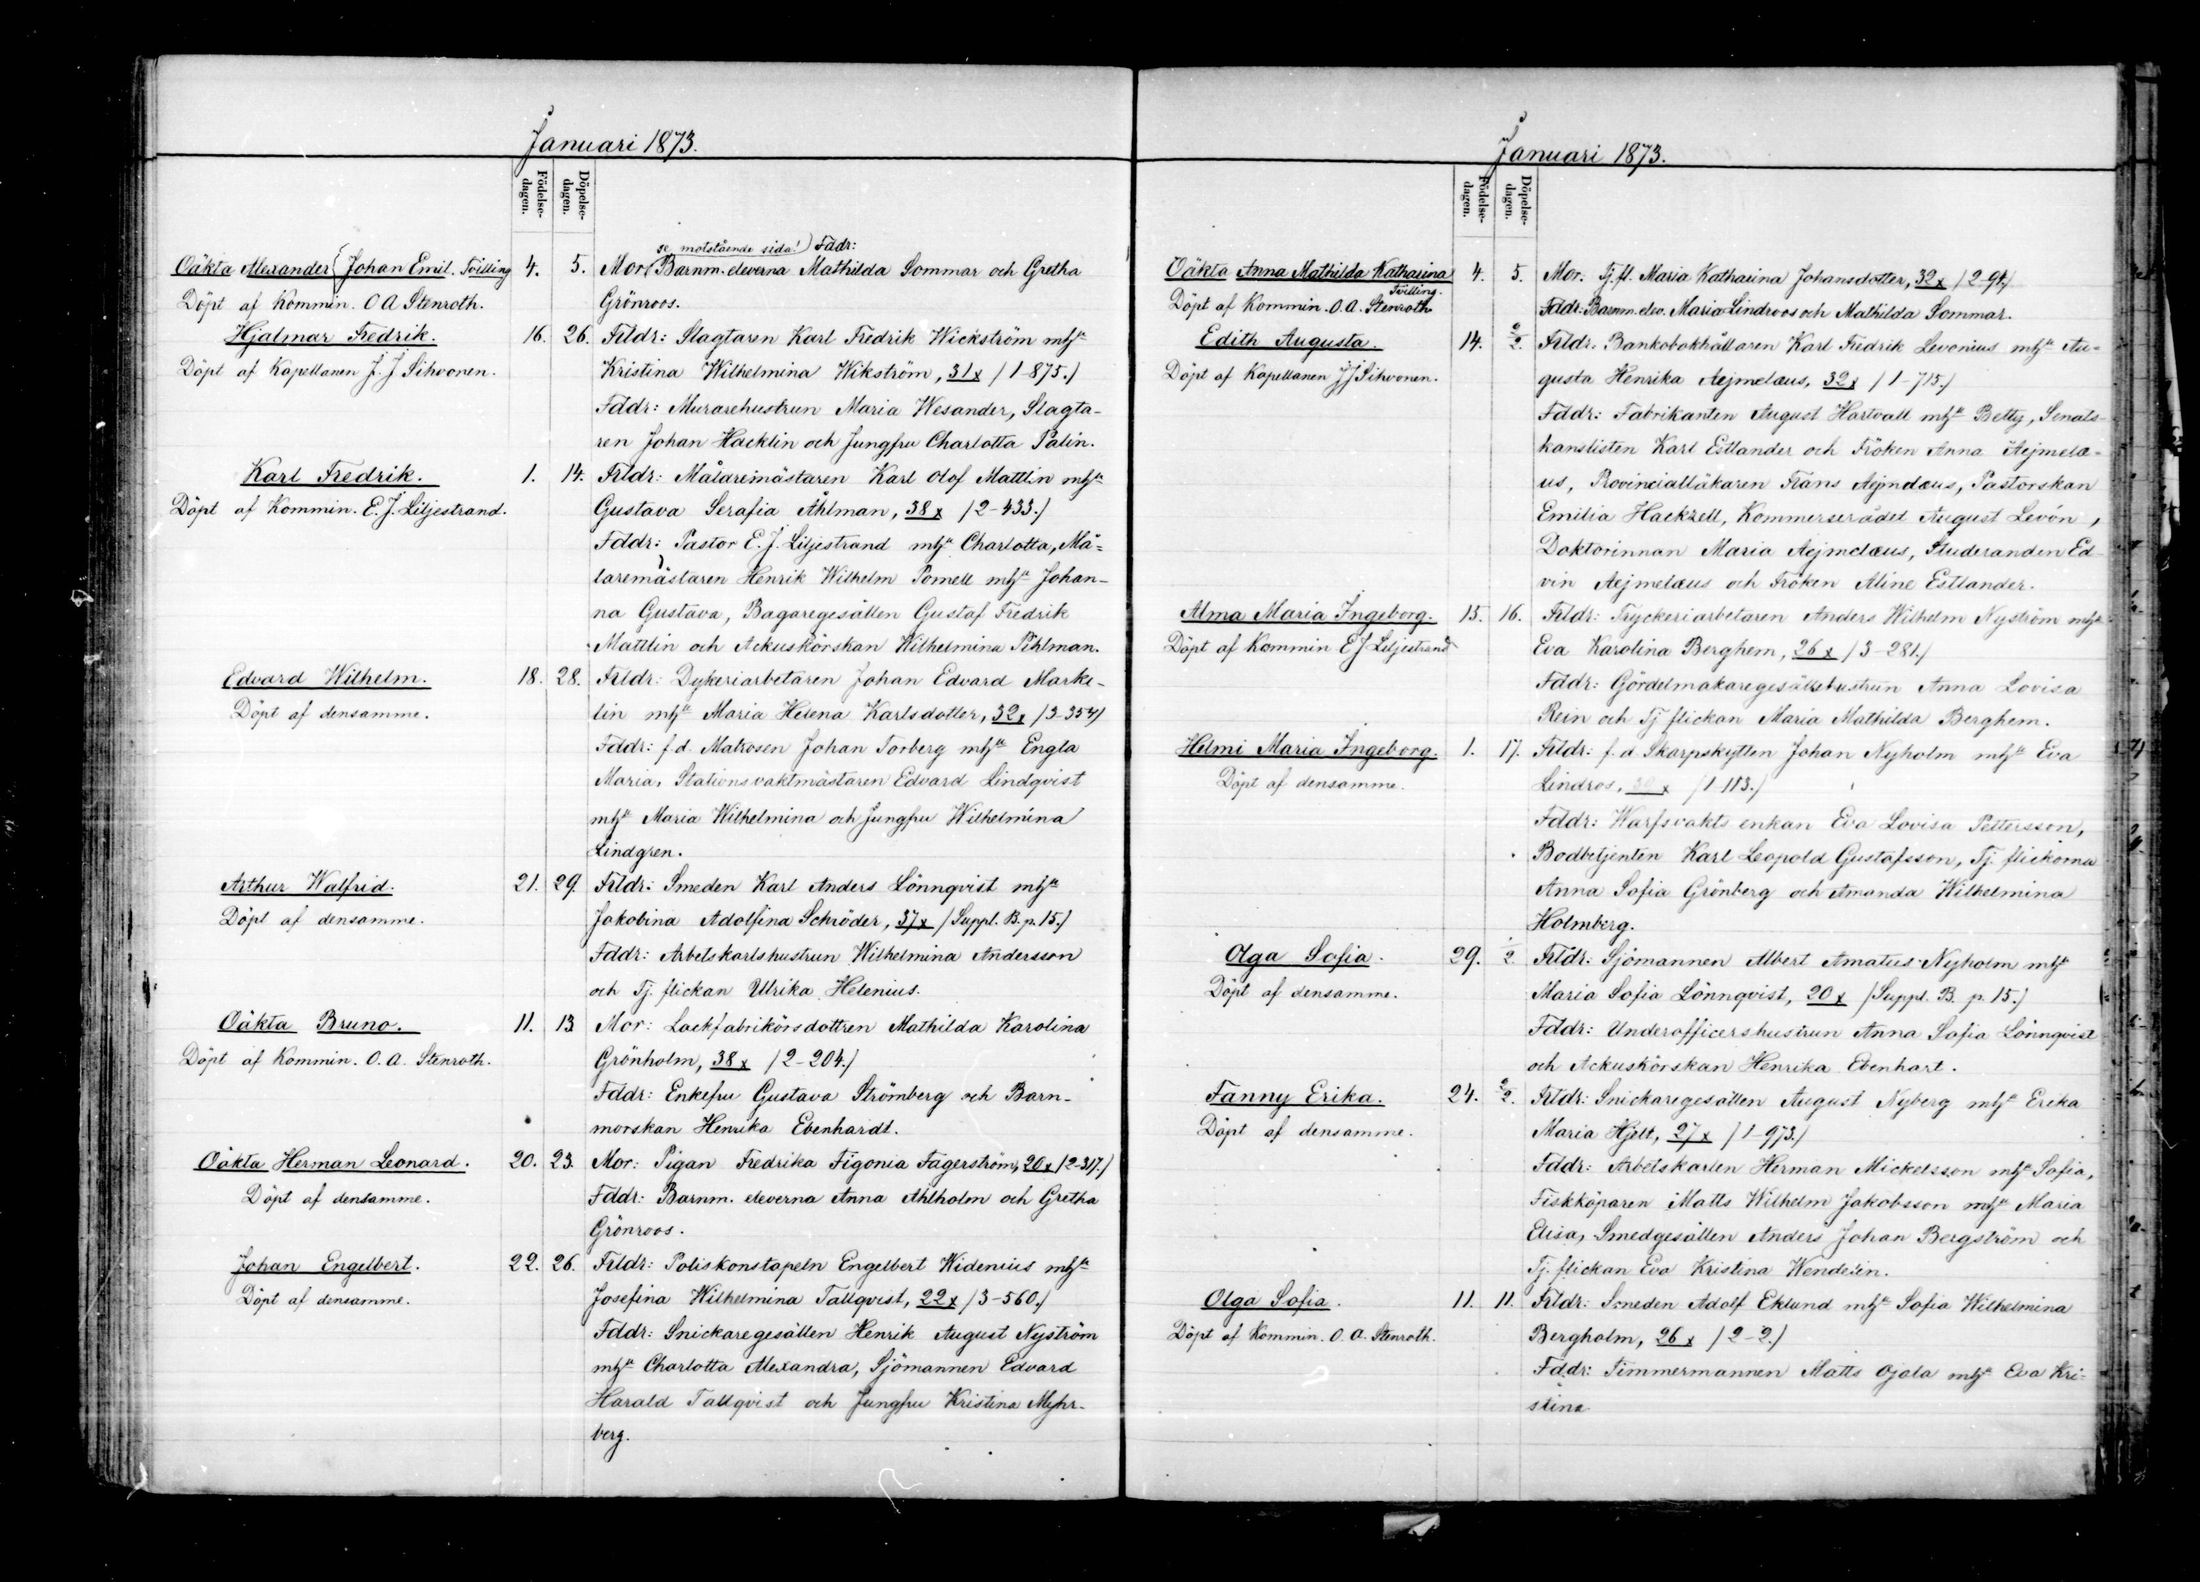 Januari 1873.
Födelse-
dagen.
Döpelse-
dagen.
Oäkta Alexander (Johan Emil. Tvilling 4. 5. Mor (se motstående sida!) Fddr:
Barnm. eleverna Mathilda Sommar och Gretha
Döpt af Kommin. O A Stenroth. Grönroos.
Hjalmar Fredrik. 16. 26. Frldr: Slagtaren Karl Fredrik Wickström mhu
Döpt af Kapellanen J. J Sihvonen. Kristina Wilhelmina Wikström, 31 x /1-875./
Fddr: Murarehustrun Maria Wesander, Slagta-
ren Johan Hacklin och Jungfru Charlotta Palin.
Karl Fredrik. 1. 14. Frldr: Målaremästaren Karl Olof Mattlin mhu
Döpt af Kommin. E. J. Liljestrand. Gustava Serafia Åhlman, 38 x /2-433./
Fddr: Pastor E. J. Liljestrand mhu Charlotta, Må-
laremästaren Henrik Wilhelm Pomell mhu Johan-
na Gustava, Bagaregesällen Gustaf Fredrik
Mattlin och Ackuskörskan Wilhelmina Pihlman.
Edvard Wilhelm. 18. 28. Frldr: Dykeriarbetaren Johan Edvard Marke-
Döpt af densamme. lin mhu Maria Helena Karlsdotter, 32 x /3-354/
Fddr: f. d. Matrosen Johan Torberg mhu Engla
Maria, Stationsvaktmästaren Edvard Lindqvist
mhu Maria Wilhelmina och Jungfru Wilhelmina
Lindgren.
Arthur Walfrid. 21. 29. Frldr: Smeden Karl Anders Lönnqvist mhu
Döpt af densamme. Jakobina Adolfina Schröder, 37 x /Suppl. B. p. 15./
Fddr: Arbetskarlshustrun Wilhelmina Andersson
och Tj. flickan Ulrika Helenius.
Oäkta Bruno. 11. 13. Mor: Lackfabrikörsdottren Mathilda Karolina
Döpt af Kommin. O. A. Stenroth. Grönholm, 38 x /2-204./
Fddr: Enkefru Gustava Strömberg och Barn-
morskan Henrika Ebenhardt.
Oäkta Herman Leonard. 20. 23. Mor: Pigan Fredrika Figonia Fagerström, 20 x /2-317./
Döpt af densamme. Fddr: Barnm. eleverna Anna Ahlholm och Gretha
Grönroos.
Johan Engelbert. 22. 26. Frldr: Poliskonstapeln Engelbert Widenius mhu
Döpt af densamme. Josefina Wilhelmina Tallqvist, 22 x /3-560./
Fddr: Snickaregesällen Henrik August Nyström
mhu Charlotta Alexandra, Sjömannen Edvard
Harald Tallqvist och Jungfru Kristina Myhr-
berg.
Januari 1873.
Födelse-
dagen.
Döpelse-
dagen.
Oäkta Anna Mathilda Katharina 4. 5. Mor: Tj. fl. Maria Katharina Johansdotter, 32 x /2-91./
Tvilling.
Döpt af Kommin. O. A. Stenroth Fddr: Barnm. elev. Maria Lindroos och Mathilda Sommar.
Edith Augusta. 14. 2/2. Frldr. Bankobokhållaren Karl Fredrik Levonius mhu Au-
Döpt af Kapellanen J J Sihvonen. gusta Henrika Aejmelæus, 32 x /1-715./
Fddr: Fabrikanten August Hartvall mhu Betty, Senats-
kanslisten Karl Estlander och Fröken Anna Aejmelæ-
us, Provincialläkaren Frans Aejmelæus, Pastorskan
Emilia Hackzell, Kommerserådet August Levón,
Doktorinnan Maria Aejmelæus, Studeranden Ed-
vin Aejmelæus och Fröken Aline Estlander.
Alma Maria Ingeborg. 15. 16. Frldr: Tryckeriarbetaren Anders Wilhelm Nyström mhu
Döpt af Kommin E J Liljestrand Eva Karolina Berghem, 26 x /3-281./
Fddr: Gördelmakaregesällshustrun Anna Lovisa
Rein och Tj flickan Maria Mathilda Berghem.
Helmi Maria Ingeborg. 1. 17. Frldr: f. d Skarpskytten Johan Nyholm mhu Eva
Döpt af densamme. Lindros, x /1-113./
Fddr: Warfsvakts enkan Eva Lovisa Pettersson,
Bodbetjenten Karl Leopold Gustafsson, Tj. flickorna
Anna Sofia Grönberg och Amanda Wilhelmina
Holmberg.
Olga Sofia. 29. 1/2. Frldr. Sjömannen Albert Amatus Nyholm mhu
Döpt af densamme. Maria Sofia Lönnqvist, 20 x /Suppl. B. p. 15./
Fddr: Underofficershustrun Anna Sofia Lönnqvist
och Ackuskörskan Henrika Ebenhart.
Fanny Erika. 24. 2/2. Frldr: Snickaregesällen August Nyberg mhu Erika
Döpt af densamme. Maria Hjelt, 27 x /1-973./
Fddr: Arbetskarlen Herman Mickelsson mhu Sofia,
Fiskköparen Matts Wilhelm Jakobsson mhu Maria
Elisa, Smedgesällen Anders Johan Bergström och
Tj. flickan Eva Kristina Wendelin.
Olga Sofia. 11. 11. Frldr: Smeden Adolf Eklund mhu Sofia Wilhelmina
Döpt af Kommin. O. A. Stenroth. Bergholm, 26 x /2-2./
Fddr: Timmermannen Matts Ojala mhu Eva Kri-
stina